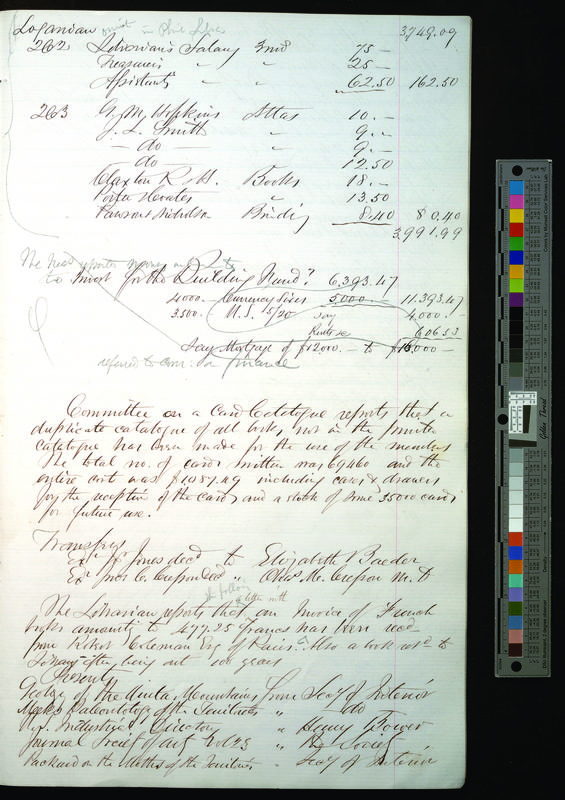 Loganian in Phil Libra 3749.09
262 Librarian's Salary 3 mos 75 —
Treasurer's " " 25 —
Assistants " " 62.50 162.50
263 G. M. Hopkins Atlas 10. —
J. L. Smith " 9. —
— do — 9. —
do — 12.50
Claxton R. & H. Books 18. —
Porter & Coates " 13.50
Pawson & Nicholson Binding 8.40 80.40
3,991.99
The Treas. reports money in to
to Invest for the Building Fund? 6,393.47
4000. — Currency Sixes 5,000. — 11,393.47
3500. U.S. 5/20 say 4,000. —
6065
Say Mortgage of $12,000. — to $16,000 —
referred to Com: on Finance
Committee on a Card Catalogue reports that a
duplicate catalogue of all books, not in the printed
catalogue has been made for the use of the members
The total no. of cards written was 69460 and the
entire cost was $1087.49 including cases & drawers
for the reception of the cards and a stock of some 35000 cards
for future use.
Transfers
Exr Jones decd to Elizabeth Baeder
Exr Jno. C. Cresson decd " Chas M. Cresson M.D
a letter
The Librarian reports that an Invoice of French
books amountg to 477.25 francs has been recd
from Robert Coleman Esq of Paris. Also a book retd to
Library after being out 100 years
Presents
Geology of the Uinta Mountains from Secy of Interior
Meeks Paleontology of the Territories " do
Industrial Directory " Henry Bower
Journal Society of Arts vol 23 " The Society
Packard on the Moths of the Territories " Secy of Interior